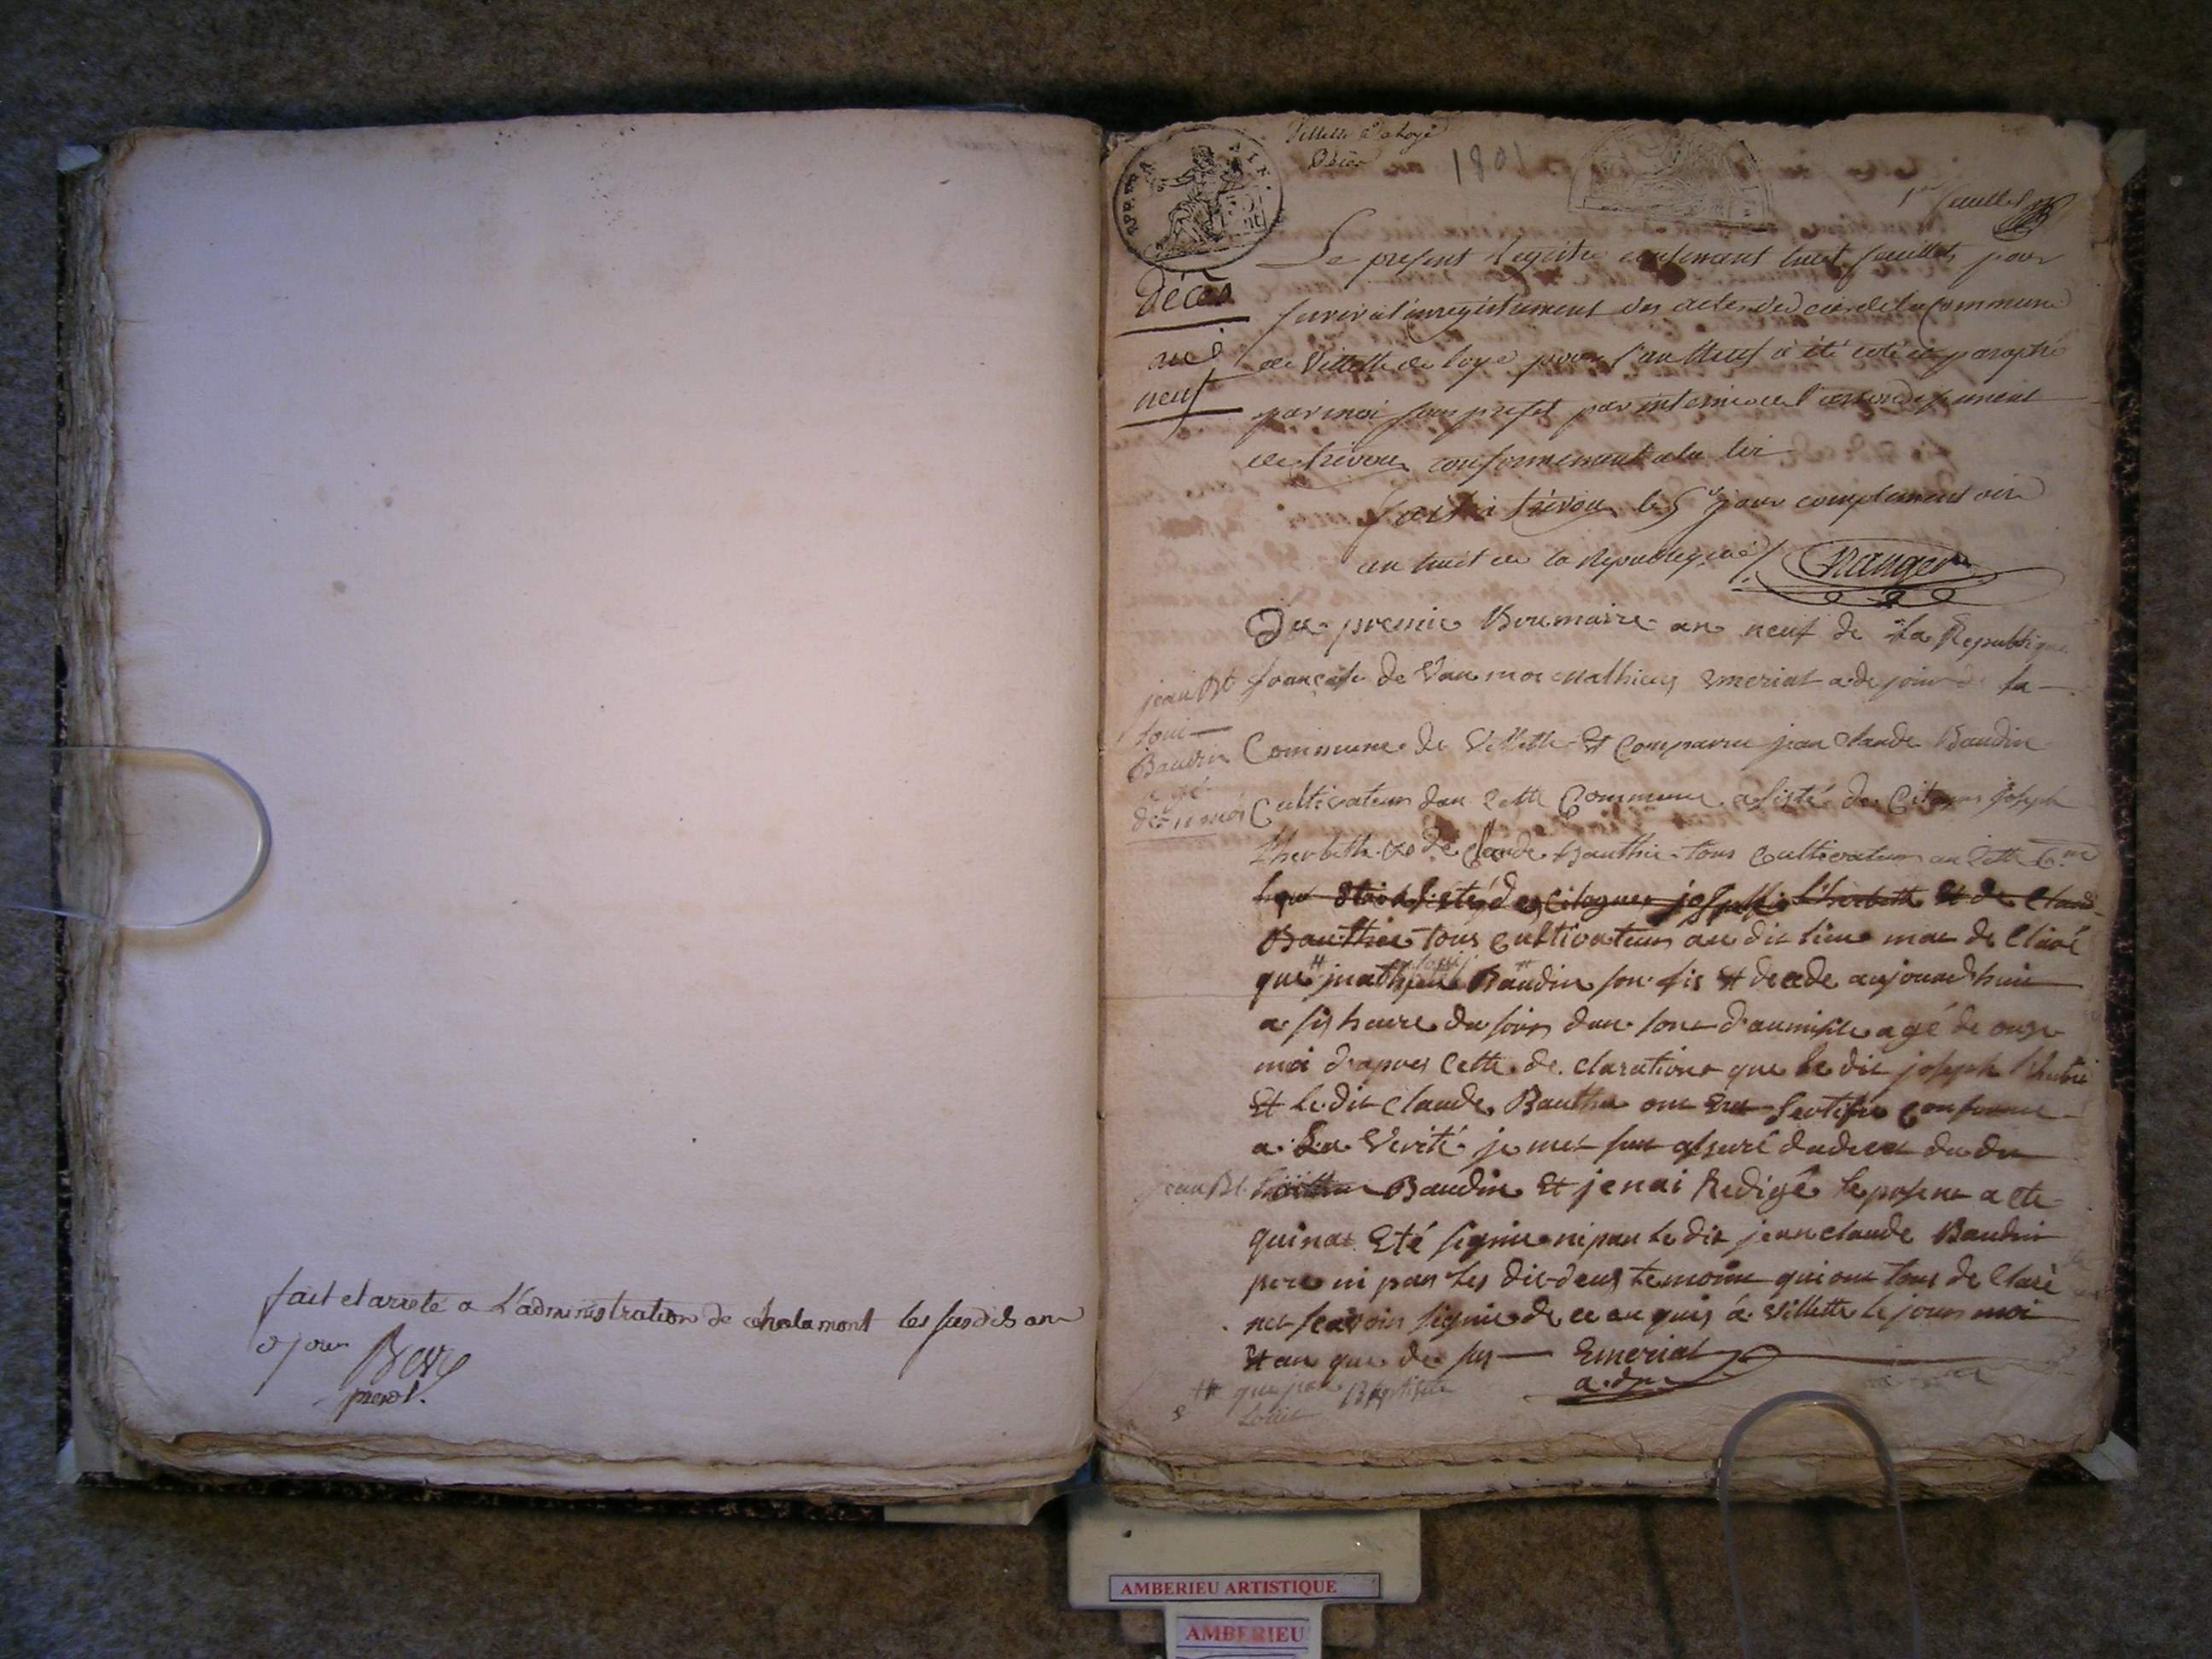 fait et arreté a L'administration de chalamont les susdits an
& jour
presdt.
Villette de Loye
Décès
1801
1er feuillet
REP. FRA
décès
an
neuf
Le present Registre contenant huit feuillets pour
servir à l'enregistrement des actes de décès de la Commune
de Villette de loye pour l'an Neuf a été coté et paraphé
par moi sous prefet par interim de l'arrondissement
de trevoux conformement a la loi
fait à trévoux le 5e jour complementaire
an huit de la Republique
Du premie Brumaire an neuf de la Republique
jean Bt
loui
Baudin
agé
de 11 mois
françaisse de Vanmoi Mathieu Emeriat adejoin de la
Commune de Villette Et Comparru jean Claude Baudin
Cultivateur dan Cette Commune asisté de Citoyens joseph
Lherbette & de Claude Bauthie tous Cultivateur an Cette Cne
Et de Claude
Bauthie tous Cultivateur au dit lieu mat de Claré
que # Baudin son fis Et decede aujourdhuie
a sis heure du soir dan sont daumisile agé de onze
moi dapres Cette de clarations que le dit joseph
Et le dit Claude Bauthie ont Certifié Conforme
a La Verité je met suit assuré du deces du dit
jean Bt. Baudin Et jenai Redigé le present acte
quinat Eté signie ni par le dit jean claude Baudin
pere ni par les dit deus temoint qui ont tous de Claré
net scavoir signie de ce en quis á Villette le jour moi
Et an que de sus Emeriat
a.djt
# que jean Baptiste
Louis
AMBERIEU ARTISTIQUE
AMBERIEU